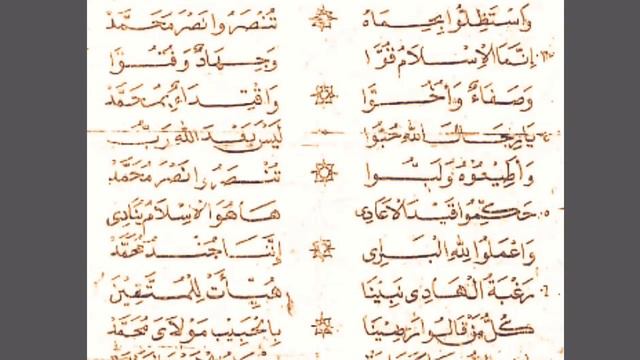 وَاسْتَظِلُّوا بِحِمَاهُ تُنْصَرُوا نَصْرَ مُحَمَّدْ
إِنَّمَا الإِسْلَامُ قُوَّا وَجِهَادٌ وَفُتُوَّا
وَصَفَاءٌ وَأُخُوَّا وَاقْتِدَاءٌ بِمُحَمَّدْ
يَارِجَالَ اللهِ حُبُّوا لَيْسَ بَعْدَ اللهِ رَبُّ
وَأَطِيعُوهُ وَلَبُّوا تُنْصَرُوا نَصْرَ مُحَمَّدْ
حَكِّمُوا قَيْدَ الأَعَادِي هَا هُوَ الإِسْلَامُ يُنَادِي
وَاعْمَلُوا لِلهِ الْبَارِي إِنَّنَا جُنْدُ مُحَمَّدْ
رَغْبَةُ الْهَادِي نَبِينَا هُيِّأَتْ لِلْمُتَّقِينَ
كُلُّ مَنْ قَالُوا رَضِينَا بِالْحَبِيبِ مَوْلَايَ مُحَمَّدْ